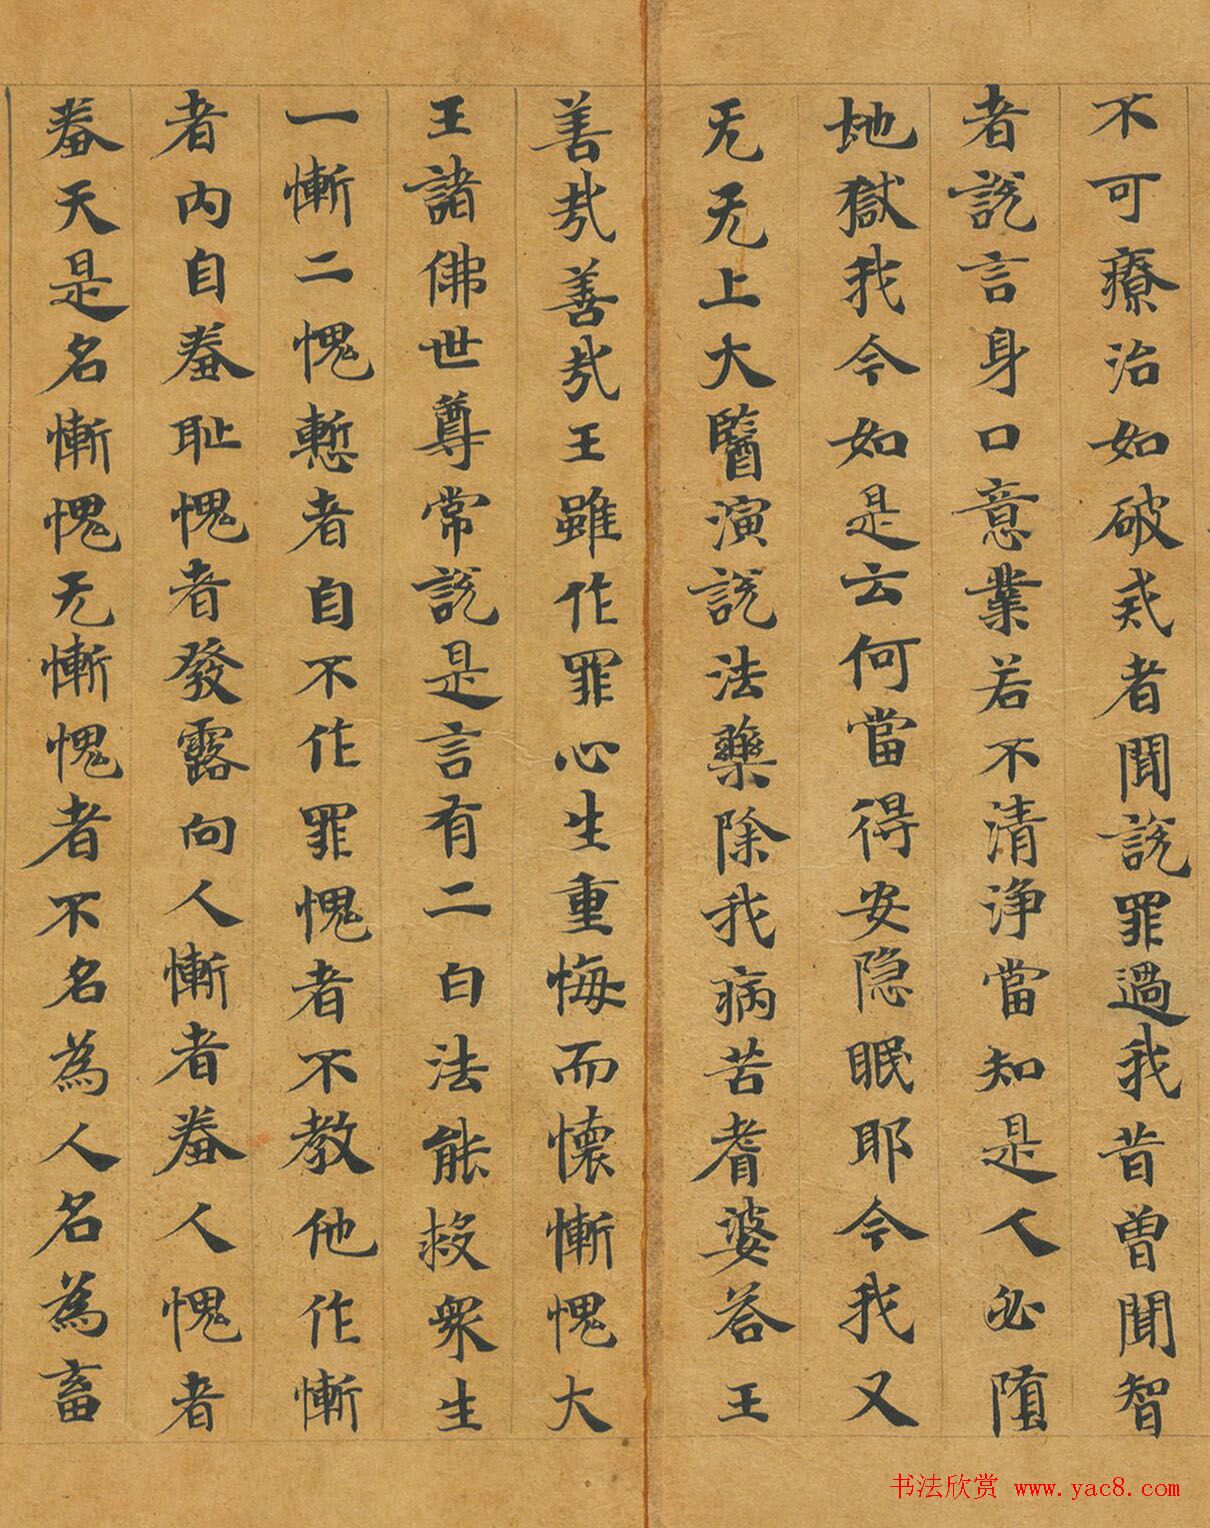 不可療治如破戒者聞說罪過我昔曾聞智
者說言身口意業若不清淨當知是人必墮
地獄我今如是云何當得安隐眠耶今我又
无无上大醫演說法藥除我病苦耆婆荅王
善哉善哉王雖作罪心生重悔而懷慚愧大
王諸佛世尊常說是言有二白法能救衆生
一慚二愧慙者自不作罪愧者不教他作慚
者內自羞耻愧者發露向人慚者羞人愧者
羞天是名慚愧无慚愧者不名為人名為畜
书法欣赏 www.yac8.com